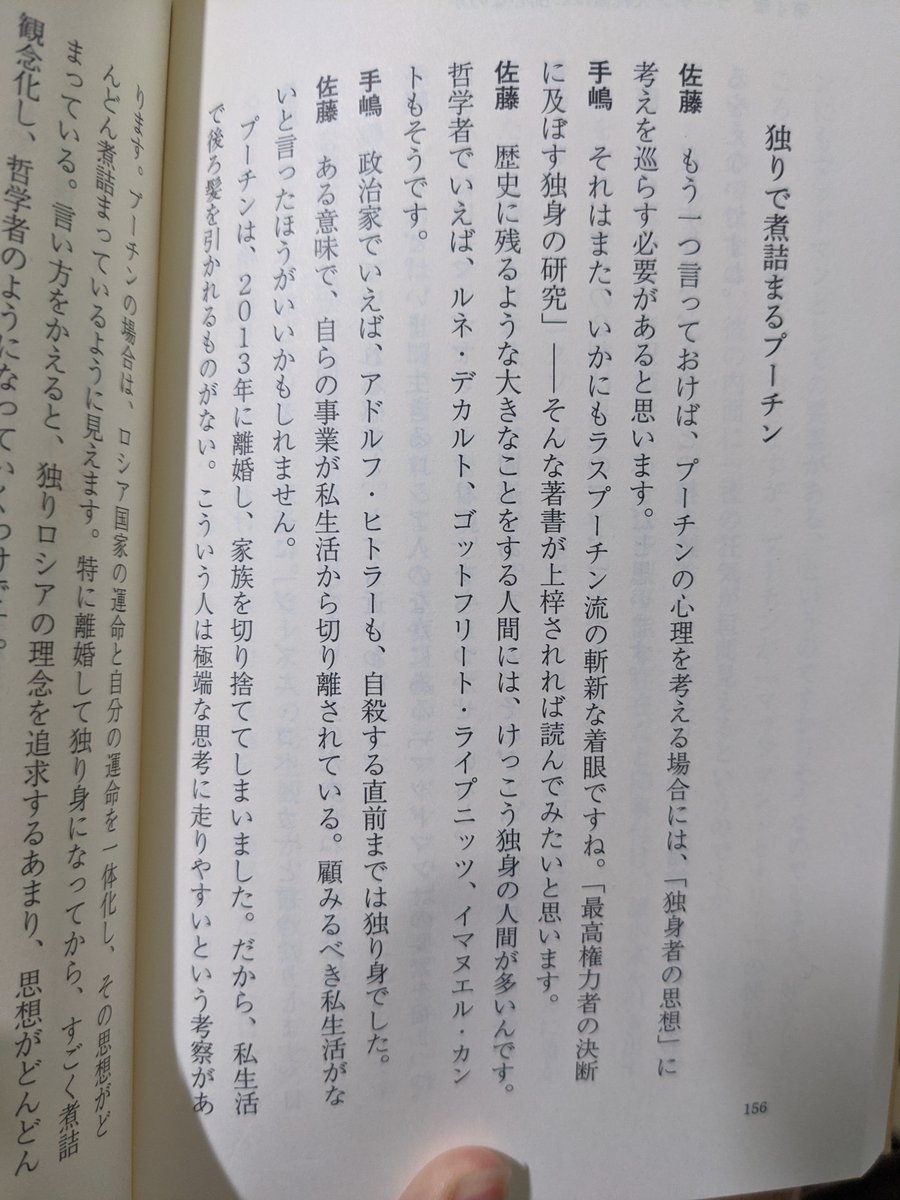 独りで煮詰まるプーチン
佐藤　もう一つ言っておけば、プーチンの心理を考える場合には、「独身者の思想」に
考えを巡らす必要があると思います。
手嶋　それはまた、いかにもラスプーチン流の斬新な着眼ですね。「最高権力者の決断
に及ぼす独身の研究」――そんな著書が上梓されれば読んでみたいと思います。
佐藤　歴史に残るような大きなことをする人間には、けっこう独身の人間が多いんです。
哲学者でいえば、ルネ・デカルト、ゴットフリート・ライプニッツ、イマヌエル・カン
トもそうです。
手嶋　政治家でいえば、アドルフ・ヒトラーも、自殺する直前までは独り身でした。
佐藤　ある意味で、自らの事業が私生活から切り離されている。顧みるべき私生活がな
いと言ったほうがいいかもしれません。
　プーチンは、2013年に離婚し、家族を切り捨ててしまいました。だから、私生活
で後ろ髪を引かれるものがない。こういう人は極端な思考に走りやすいという考察があ
156
ります。プーチンの場合は、ロシア国家の運命と自分の運命を一体化し、その思想がど
んどん煮詰まっているように見えます。特に離婚して独り身になってから、すごく煮詰
まっている。言い方をかえると、独りロシアの理念を追求するあまり、思想がどんどん
観念化し、哲学者のようになっていくわけです。